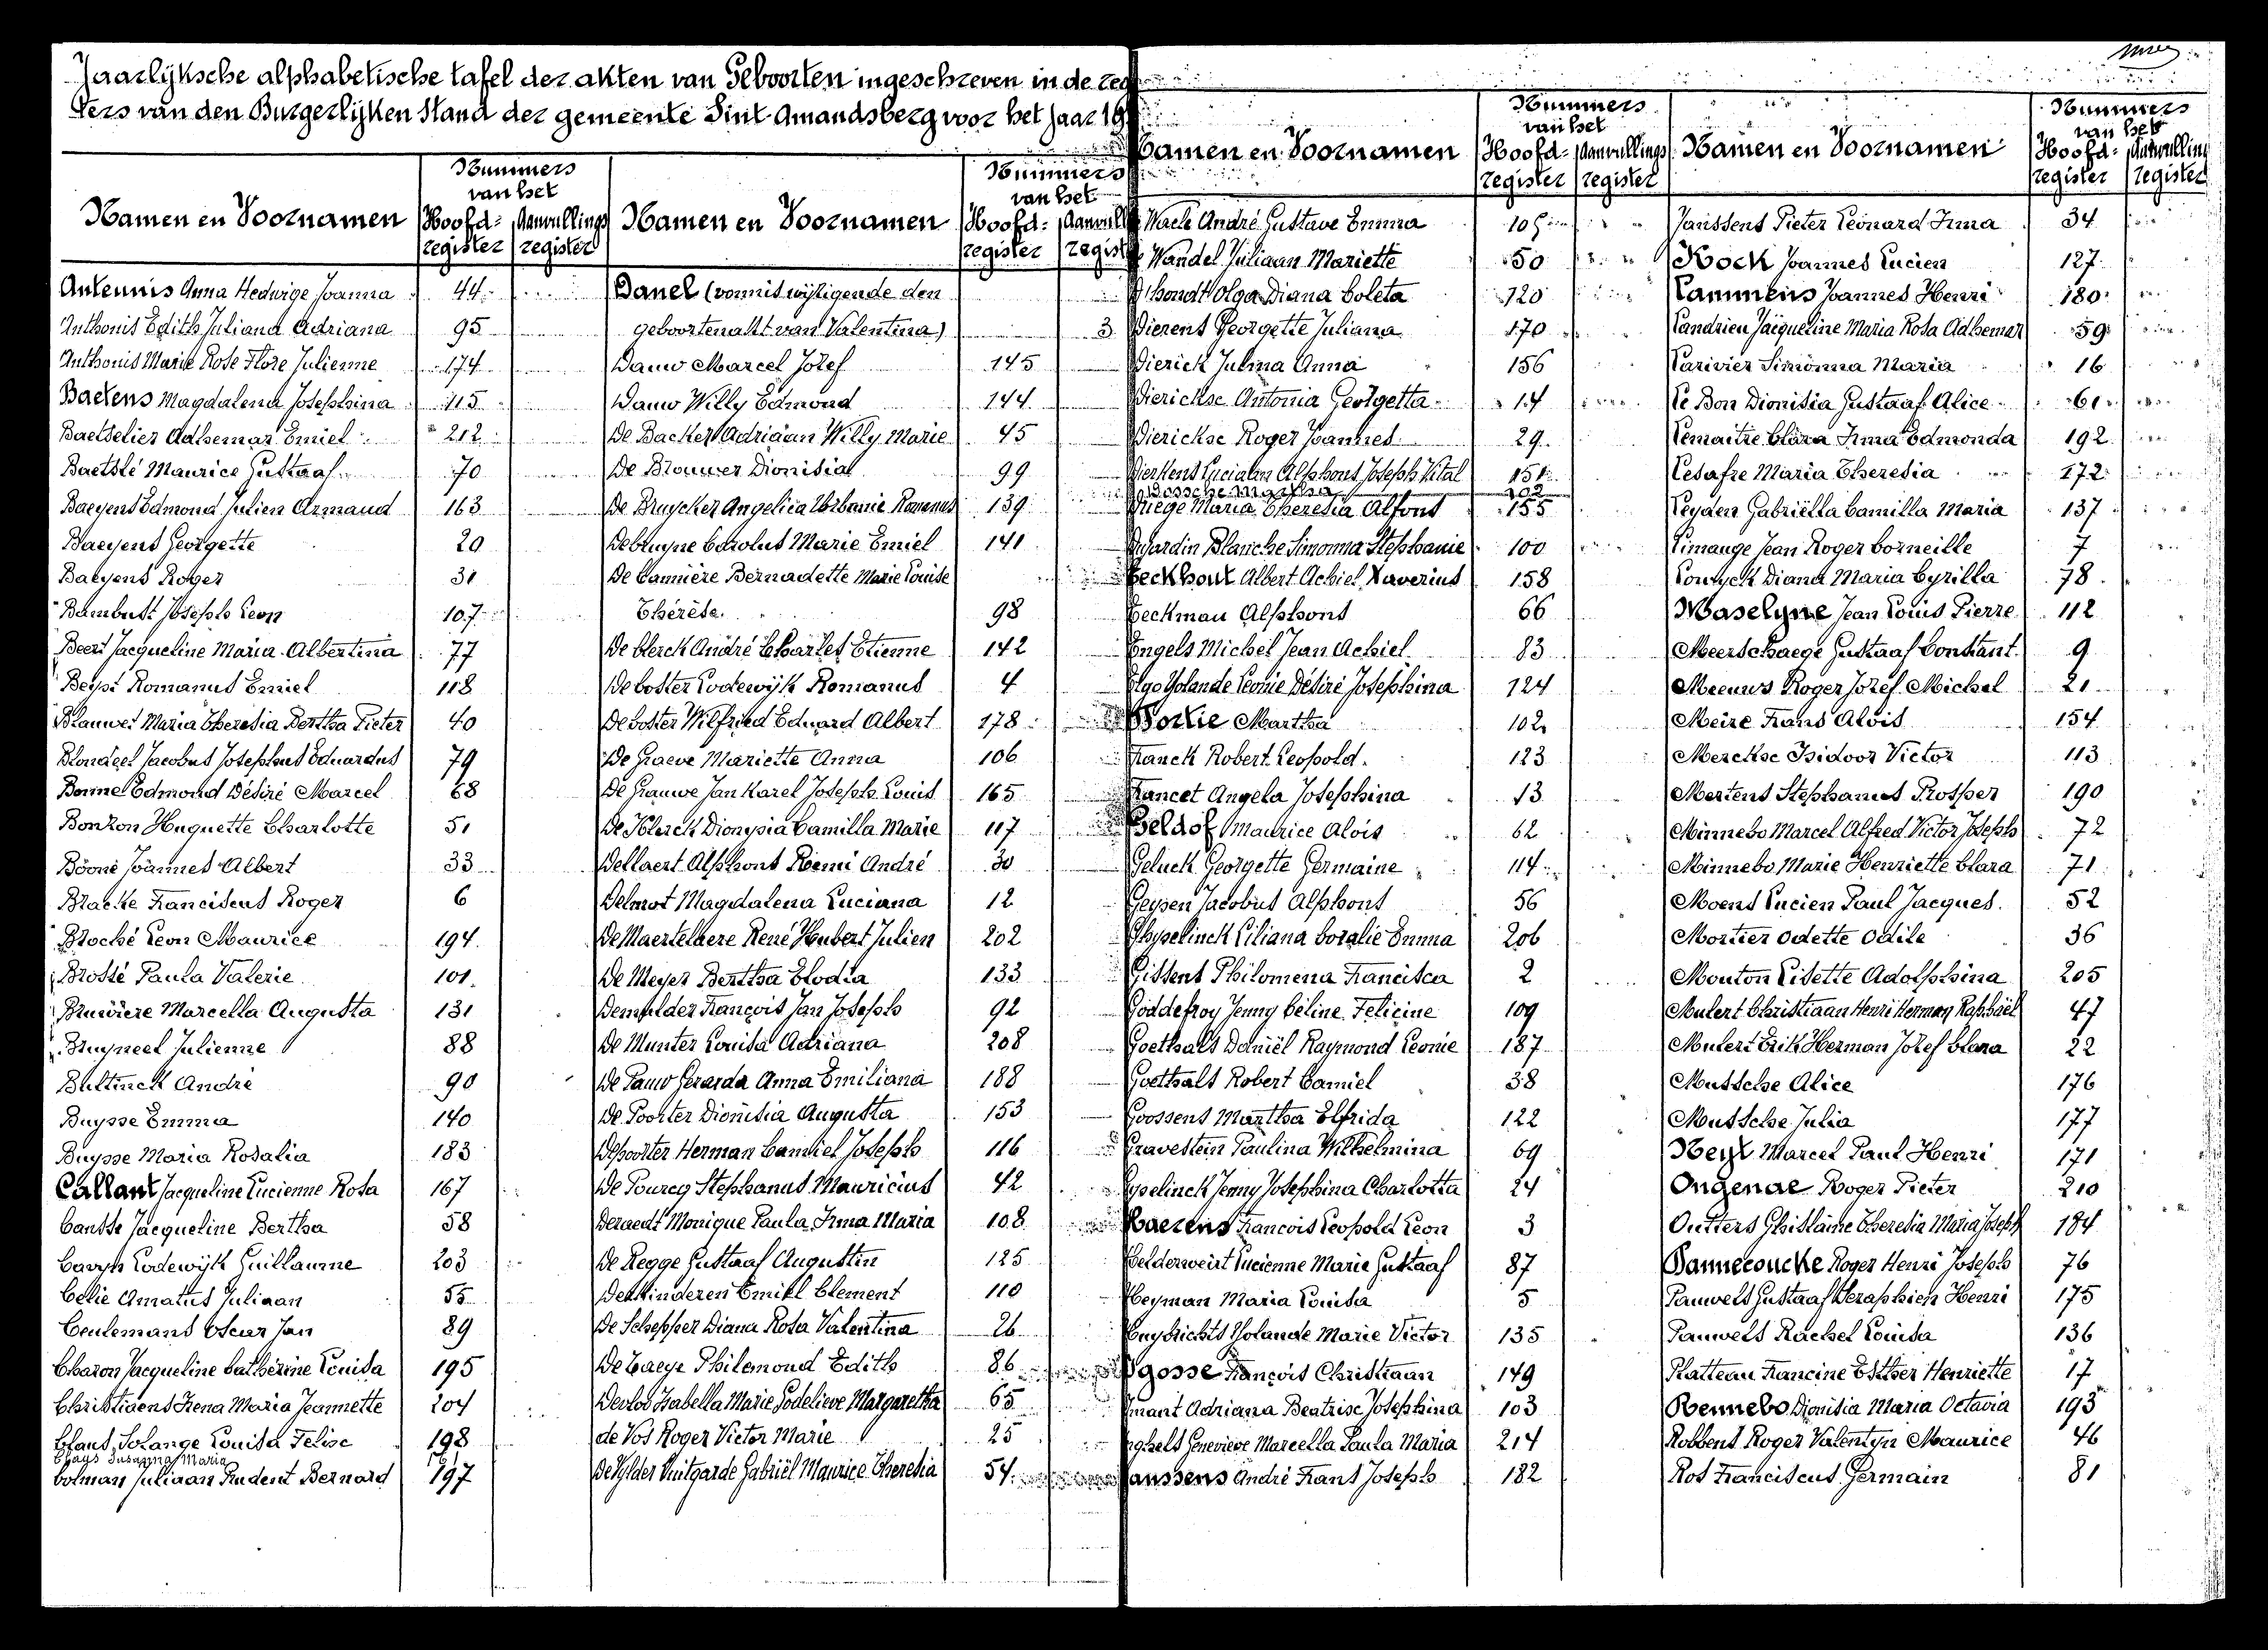 Jaarlijksche alphabetische tafel der akten van Geboorten ingeschreven in de reg
ters van den Burgerlijken Stand der gemeente Sint-Amandsberg voor het jaar 19
Namen en Voornamen
Nummers
van het
Hoofd- Aanvullings
register register
Antennis Anna Hedwige Joanna 44
Anthonis Edith Juliana Adriana 95
Anthonis Marie Rose Flore Julienne 174
Baetens Magdalena Josephina 115
Baetselier Adhemar Emiel 212
Baetslé Maurice Gustaaf 70
Baeyens Edmond Julien Armand 163
Baeyens Georgette 20
Baeyens Roger 31
Bambust Joseph Leon 107
Beert Jacqueline Maria Albertina 77
Beyst Romanus Emiel 118
Blauwet Maria Theresia Bertha Pieter 40
Blondeel Jacobus Josephus Eduardus 79
Bonne Edmond Désiré Marcel 68
Bonron Huguette Charlotte 51
Booné Joannes Albert 33
Bracke Franciscus Roger 6
Broché Leon Maurice 194
Brossé Paula Valerie 101
Bruwiere Marcella Augusta 131
Bruyneel Julienne 88
Bultinck André 90
Buysse Emma 140
Buysse Maria Rosalia 183
Callant Jacqueline Lucienne Rosa 167
Cansse Jacqueline Bertha 58
Caryn Lodewijk Guillaume 203
Celie Amatus Juliaan 55
Ceulemans Oscar Jan 89
Charon Jacqueline Catherine Louisa 195
Christiaens Irena Maria Jeannette 204
Claus Solange Louisa Felix 198
Clays Susanna Maria
Colman Juliaan Prudent Bernard 197
Namen en Voornamen
Nummers
van het
Hoofd- Aanvull
register regist
Danel (vonnis wijzigende den
geboorteakt van Valentina) 3
Dauw Marcel Jozef 145
Dauw Willy Edmond 144
De Backer Adriaan Willy Marie 45
De Brouwer Dionisia 99
De Bruycker Angelica Urbanie 139
Debruyne Carolus Marie Emiel 141
De Cannière Bernadette Marie Louise
Thérèse 98
De Clerck André Charles Etienne 142
De Coster Lodewijk Romanus 4
De Coster Wilfried Eduard Albert 178
De Graeve Mariette Anna 106
De Grauwe Jan Karel Joseph Louis 165
De Klerck Dionysia Camilla Marie 117
Dellaert Alphons Remi André 30
Delmot Magdalena Luciana 12
De Maertelaere René Hubert Julien 202
De Meyer Bertha Elodia 133
Demulder François Jan Joseph 92
De Munter Louisa Adriana 208
De Pauw Gerarda Anna Emiliana 188
De Poorter Dionisia Augusta 153
Depoorter Herman Camiel Joseph 116
De Pourcq Stephanus Mauricius 42
Deraedt Monique Paula Irma Maria 108
De Regge Gustaaf Augustin 125
Derkinderen Emiel Clement 110
De Schepper Diana Rosa Valentina 26
De Taeye Philemond Edith 86
Devloo Isabella Marie Godelieve Margaretha 65
de Vos Roger Victor Marie 25
De Wilder Luitgarde Gabriël Maurice Theresia 54
Namen en Voornamen
Nummers
van het
Hoofd- Aanvullings
register register
Waele André Gustave Emma 105
Wandel Juliaan Mariette 50
D'hondt Olga Diana Coleta 120
Dierens Georgette Juliana 170
Dierick Julma Anna 156
Dierickse Antonia Georgetta 14
Dierickse Roger Joannes 29
Dierkens Luciaan Alphons Joseph Vital 151
Dossche Martha 102
Driege Maria Theresia Alfons 155
Dujardin Blanche Simonna Stephanie 100
Eeckhout Albert Achiel Xaverius 158
Eeckman Alphons 66
Engels Michel Jean Achiel 83
Ergo Yolande Leonie Désiré Josephina 124
Fortie Martha 102
Franck Robert Leopold 123
Francet Angela Josephina 13
Geldof Maurice Alois 62
Geluck Georgette Germaine 114
Geysen Jacobus Alphons 56
Ghyselinck Liliana Coralie Emma 206
Gissens Philomena Francisca 2
Goddefroy Jenny Céline Felicine 109
Goethals Daniël Raymond Leonie 187
Goethals Robert Camiel 38
Goossens Martha Elfrida 122
Gravestein Paulina Wilhelmina 69
Gyselinck Jenny Josephina Charlotta 24
Haerens Francois Leopold Leon 3
Helderweirt Lucienne Marie Gustaaf 87
Heyman Maria Louisa 5
Huybrechts Yolande Marie Victor 135
gosse François Christiaan 149
Imant Adriana Beatrise Josephina 103
Inghels Genevieve Marcella Paula Maria 214
Janssens André Frans Joseph 182
Namen en Voornamen
Nummers
van het
Hoofd- Aanvulling
register register
Janssens Pieter Leonard Irma 34
Kock Joannes Lucien 127
Lammens Joannes Henri 180
Landrien Jacqueline Maria Rosa Adhemar 59
Larivier Simonna Maria 16
Le Bon Dionisia Gustaaf Alice 61
Lemaitre Clara Irma Edmonda 192
Lesafre Maria Theresia 172
Leyden Gabriëlla Camilla Maria 137
Limange Jean Roger Corneille 7
Louwyck Diana Maria Cyrilla 78
Maselyne Jean Louis Pierre 112
Meerschaege Gustaaf Constant 9
Meeuws Roger Jozef Michel 21
Meire Frans Alois 154
Merckse Isidoor Victor 113
Mertens Stephanus Prosper 190
Minnebo Marcel Alfred Victor Joseph 72
Minnebo Marie Henriette Clara 71
Moens Lucien Paul Jacques 52
Mortier Odette Odile 36
Mouton Lisette Adolphina 205
Mulert Christiaan Henri Herman Raphaël 47
Mulert Erik Herman Jozef Clara 22
Mussche Alice 176
Mussche Julia 177
Neyt Marcel Paul Henri 171
Ongenae Roger Pieter 210
Outters Ghislaine Theresia Maria Joseph 184
Pannecoucke Roger Henri Joseph 76
Pauwels Gustaaf Seraphien Henri 175
Pauwels Rachel Louisa 136
Platteau Francine Esther Henriette 17
Rennebo Dionisia Maria Octavia 193
Robbens Roger Valentyn Maurice 46
Ros Franciscus Germain 81